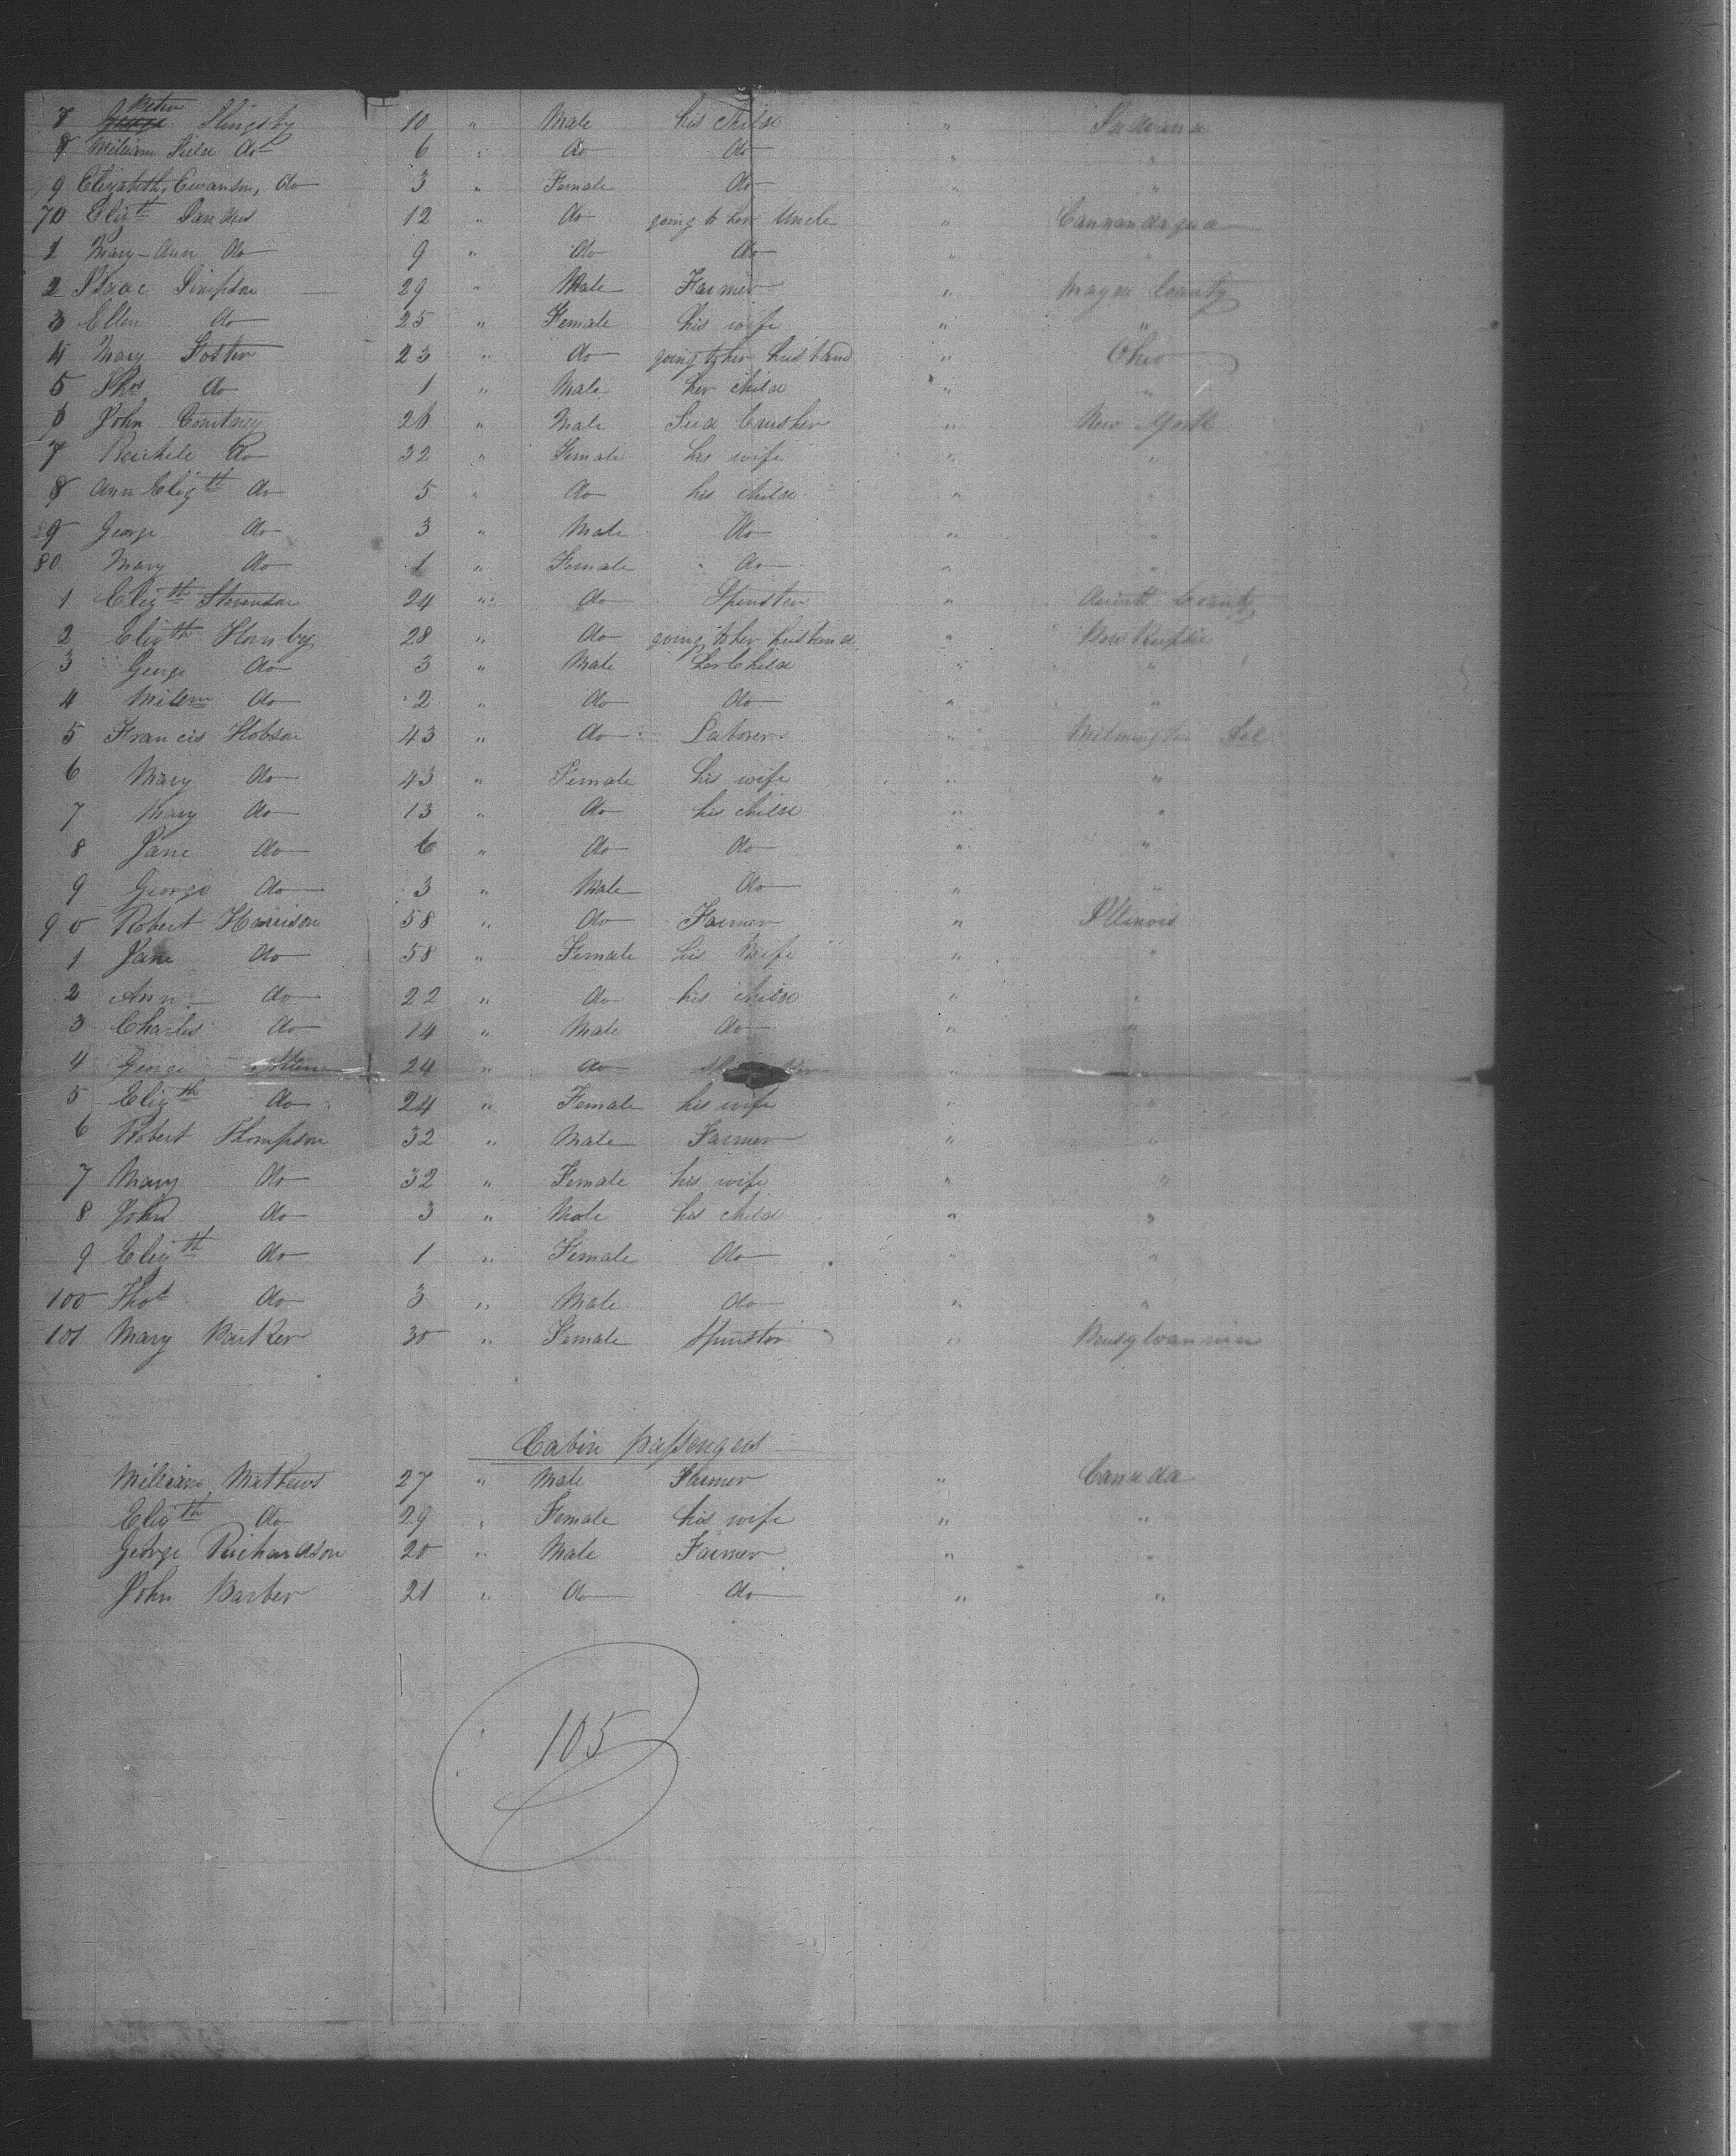 7 Peter Slingsby 10 " Male his child " Indiana
8 William Field do 6 " do do " "
9 Elizabeth, Cwanson, do 3 " Female do " "
70 Elizth Sanders 12 " do going to her Uncle " Cannandagua
1 Mary-Ann do 9 " do do " "
2 Isaac Simpson 29 " Male Farmer " County
3 Ellen do 25 " Female his wife " "
4 Mary Foster 23 " do going to her husband " Ohio
5 Thos do 1 " Male her child " "
6 John Courtney 26 " Male Seed Crusher " New York
7 do 32 " Female his wife " "
8 Ann Elizth do 5 " do his child " "
9 George do 3 " Male do " "
80 Mary do 1 " Female do " "
1 Elizth Stevenson 24 " do Spinster " County
2 Elizth Hornby 28 " do going to her husband "
3 George do 3 " Male her Child " "
4 Willm do 2 " do do " "
5 Francis Hobson 43 " do Laborer " Wilmington Del
6 Mary do 43 " Female his wife " "
7 Mary do 13 " do his child " "
8 Jane do 6 " do do " "
9 George do 3 " Male do " "
90 Robert Harrison 58 " do Farmer " Illinois
1 Jane do 58 " Female his Wife " "
2 Ann do 22 " do his child " "
3 Charles do 14 " Male do " "
4 George 24 " do "
5 Elizth do 24 " Female his wife " "
6 Robert Thompson 32 " Male Farmer " "
7 Mary do 32 " Female his wife " "
8 John do 3 " Male his child " "
9 Elizth do 1 " Female do " "
100 Thos do 3 " Male do " "
101 Mary Barker 30 " Female Spinster " Pensylvannia
Cabin passengers
William Mathews 27 " Male Farmer " Canada
Elizth do 29 " Female his wife " "
George Richardson 20 " Male Farmer " "
John Barber 21 " do do " "
105